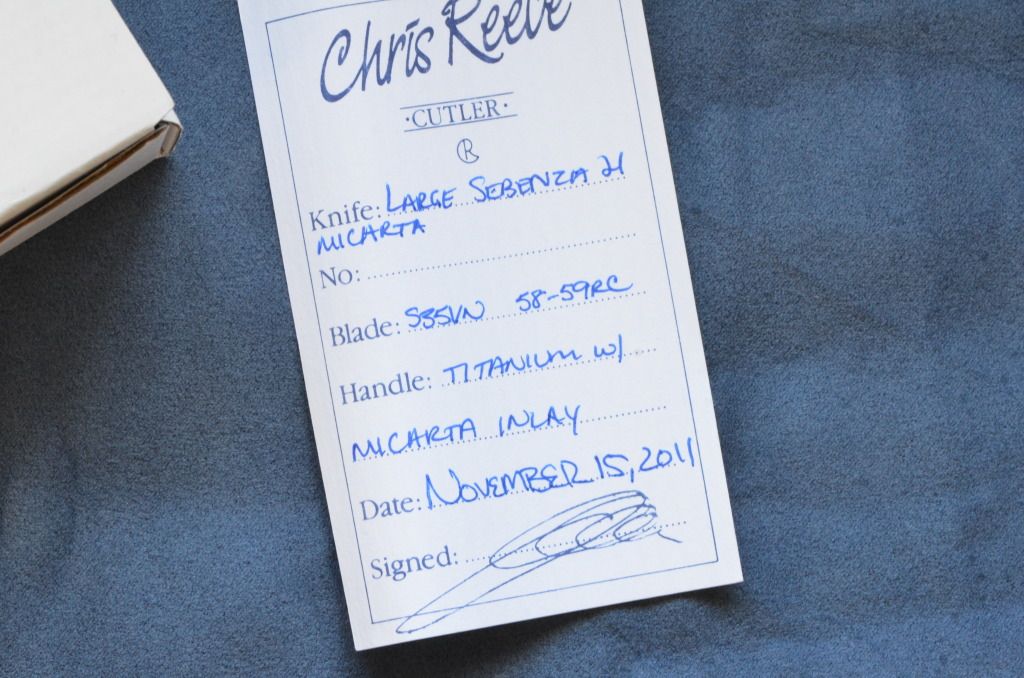 Chris Reeve
·CUTLER·
R
Knife: LARGE SEBENZA 21
MICARTA
No:
Blade: S35VN 58-59RC
Handle: TITANIUM W/
MICARTA INLAY
Date: NOVEMBER 15, 2011
Signed: